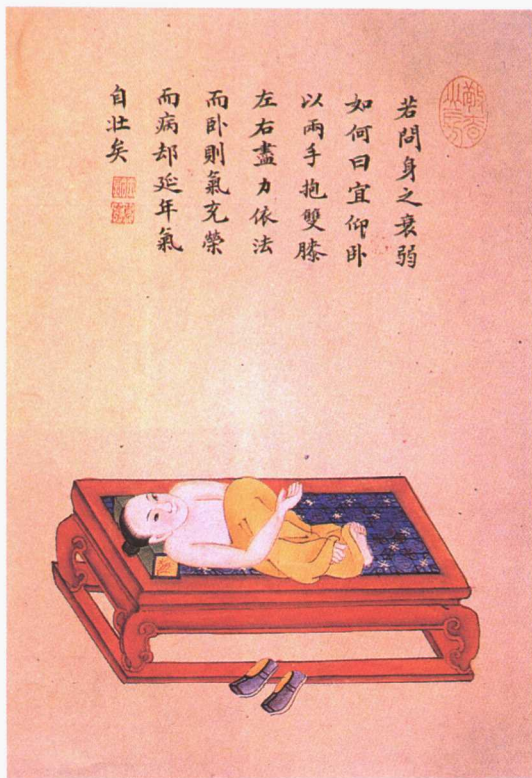 若問身之衰弱
如何曰宜仰卧
以兩手抱雙膝
左右盡力依法
而卧則氣充榮
而病却延年氣
自壯矣